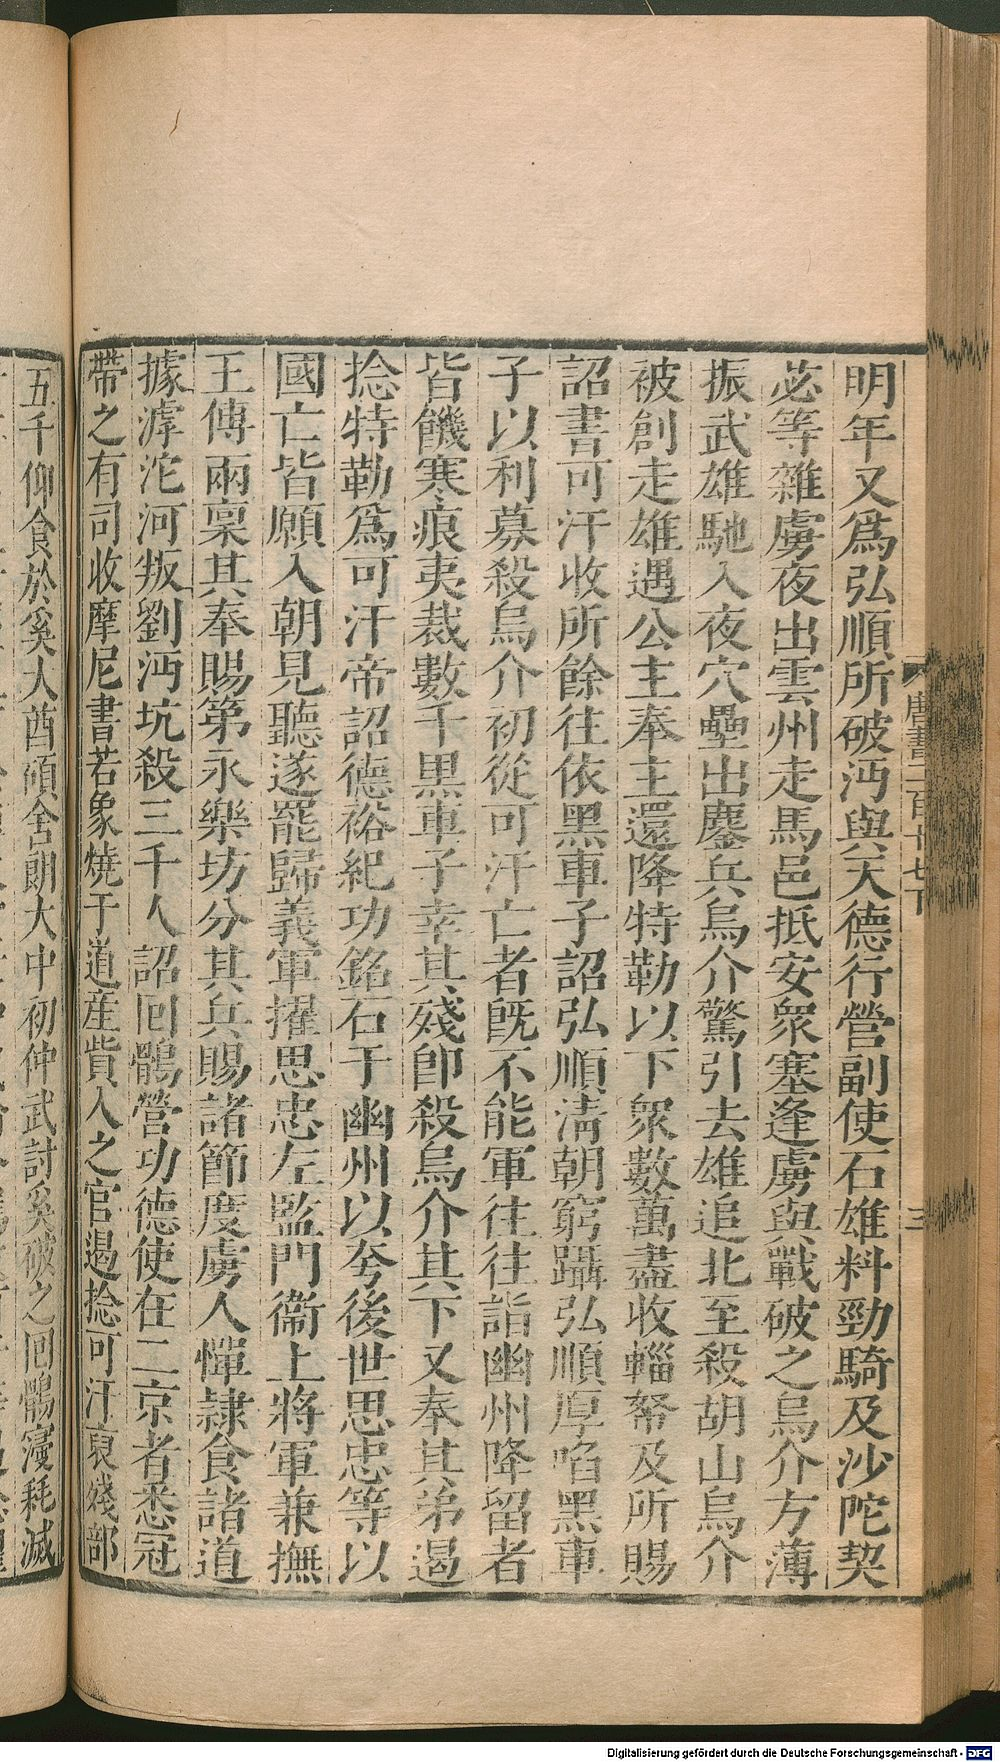 明年又爲弘順所破沔與天德行營副使石雄料勁騎及沙陀契
苾等雜虜夜出雲州走馬邑抵安衆塞逢虜與戰破之烏介方薄
振武雄馳入夜穴壘出鏖兵烏介驚引去雄追北至殺胡山烏介
被創走雄遇公主奉主還降特勒以下衆數萬盡收輜帑及所賜
詔書可汗收所餘往依黑車子詔弘順淸朝窮躡弘順厚啗黑車
子以利募殺烏介初從可汗亡者旣不能軍往往詣幽州降留者
皆饑寒痕夷裁數千黑車子幸其殘卽殺烏介其下又奉其弟遏
捻特勒爲可汗帝詔德裕紀功銘石于幽州以夸後世思忠等以
國亡皆願入朝見聽遂罷歸義軍擢思忠左監門衞上將軍兼撫
王傅兩稟其奉賜第永樂坊分其兵賜諸節度虜人憚隷食諸道
據滹沱河叛劉沔坑殺三千人詔回鶻營功德使在二京者悉冠
帶之有司收摩尼書若象燒于道産貲入之官遏捻可汗裒殘部
五千仰食於奚大酋碩舍朗大中初仲武討奚破之回鶻寖耗滅
唐書二百十七下
三
Digitalisierung gefördert durch die Deutsche Forschungsgemeinschaft - DFG